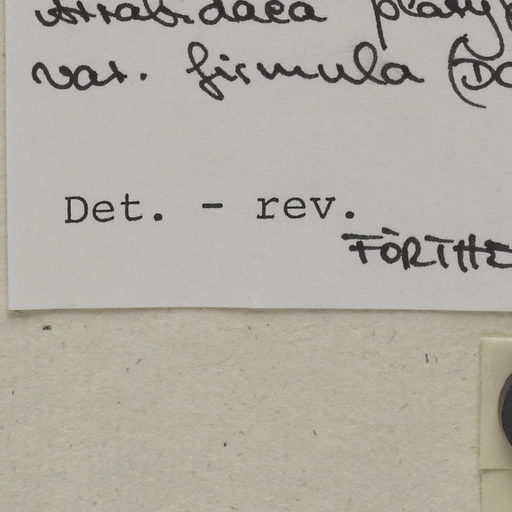 Atrabidaea platyp
var. firmula (Do
Det. - rev.
FÖRTHE